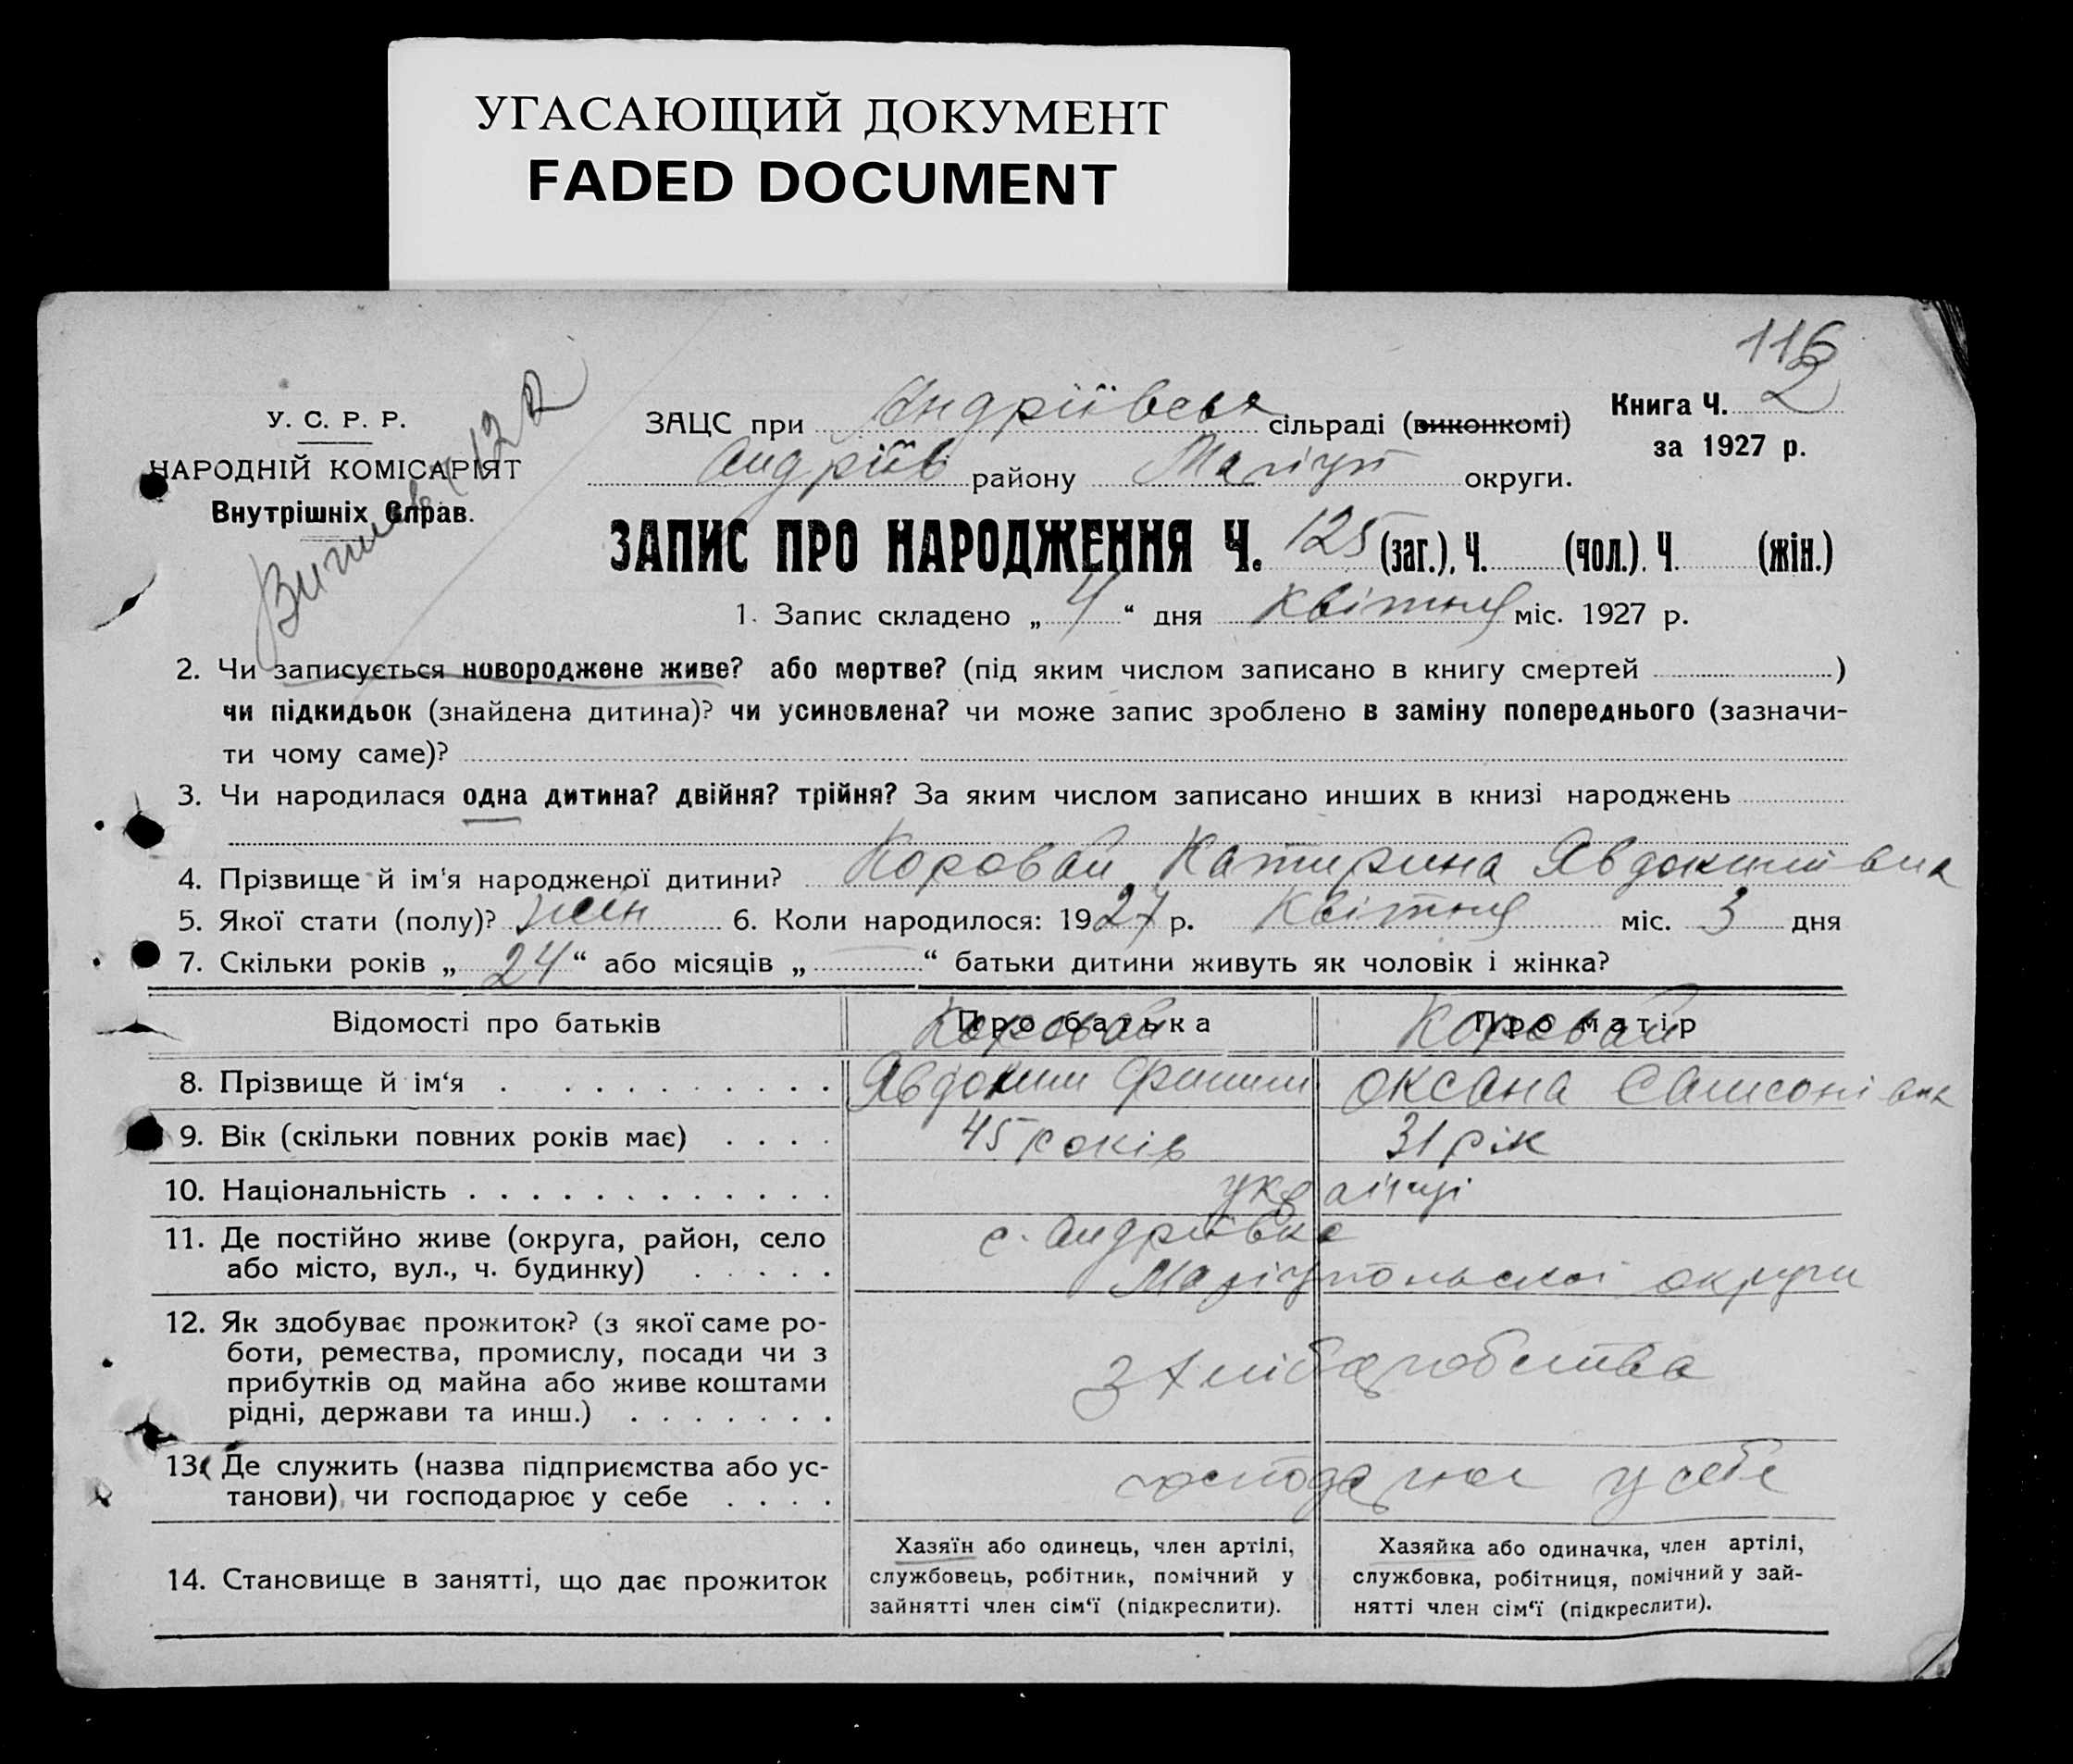 УГАСАЮЩИЙ ДОКУМЕНТ
FADED DOCUMENT
116
У. С. Р. Р.
НАРОДНІЙ КОМІСАРІЯТ
Внутрішніх Справ.
ЗАЦС при Андріївська сільраді (виконкомі)
Андріїв району Маріуп округи.
Книга Ч. 2
за 1927 р.
ЗАПИС ПРО НАРОДЖЕННЯ Ч. 125 (заг.), Ч. (чол.). Ч. (жін.)
1. Запис складено „ 4 “ дня квітня міс. 1927 р.
2. Чи записується новороджене живе? або мертве? (під яким числом записано в книгу смертей )
чи підкидьок (знайдена дитина)? чи усиновлена? чи може запис зроблено в заміну попереднього (зазначи-
ти чому саме)?
3. Чи народилася одна дитина? двійня? трійня? За яким числом записано инших в книзі народжень
4. Прізвище й ім‘я народженої дитини? Коровай Катирина Явдокимівна
5. Якої стати (полу)? жін 6. Коли народилося: 1927 р. Квітня міс. 3 дня
7. Скільки років „ 24 “ або місяців „ “ батьки дитини живуть як чоловік і жінка?
Відомості про батьків Про батька Про матір
Коровай Коровай
8. Прізвище й ім‘я Явдоким Филип Оксана Самсонівна
9. Вік (скільки повних років має) 45 років 31 рік
10. Національність українці
11. Де постійно живе (округа, район, село с. Андріївка
або місто, вул., ч. будинку) Маріупольської округи
12. Як здобуває прожиток? (з якої саме ро-
боти, ремества, промислу, посади чи з
прибутків од майна або живе коштами
рідні, держави та инш.) З хліборобства
13. Де служить (назва підприємства або ус-
танови), чи господарює у себе господарює у себе
14. Становище в занятті, що дає прожиток
Хазяїн або одинець, член артілі,
службовець, робітник, помічний у
зайнятті член сім‘ї (підкреслити).
Хазяйка або одиначка, член артілі,
службовка, робітниця, помічний у зай-
нятті член сім‘ї (підкреслити).